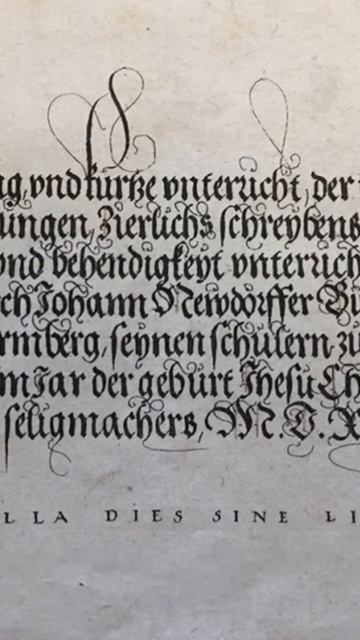 ng, vnd kurtze vnterricht, der
ungen, Zierlichs schreybens
vnd behendigkeyt vnterrich
ch Johann Newdörffer Bü
rmberg, seynen schulern zu
m Jar der geburt Jhesu Ch
seligmachers, M.D.X
LLA DIES SINE LI